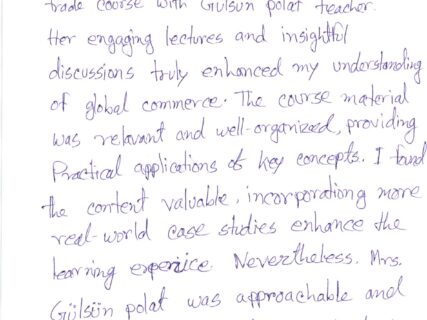 trade course with Gülsün polat teacher.
Her engaging lectures and insightful
discussions truly enhanced my understanding
of global commerce. The course material
was relavant and well-organized, providing
Practical applications of key concepts. I found
the content valuable, incorporationg more
real-world case studies enhance the
learning experice. Nevertheless. Mrs.
Gülsün polat was approachable and